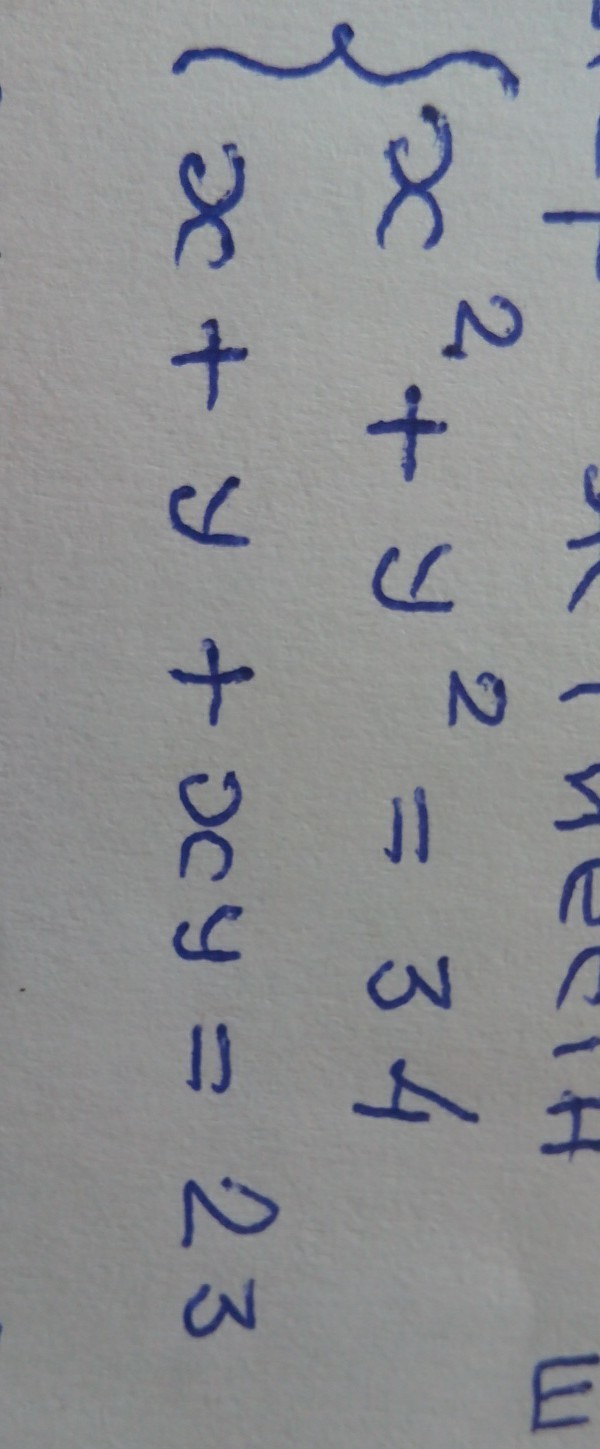 x² + y² = 34
x + y + xy = 23